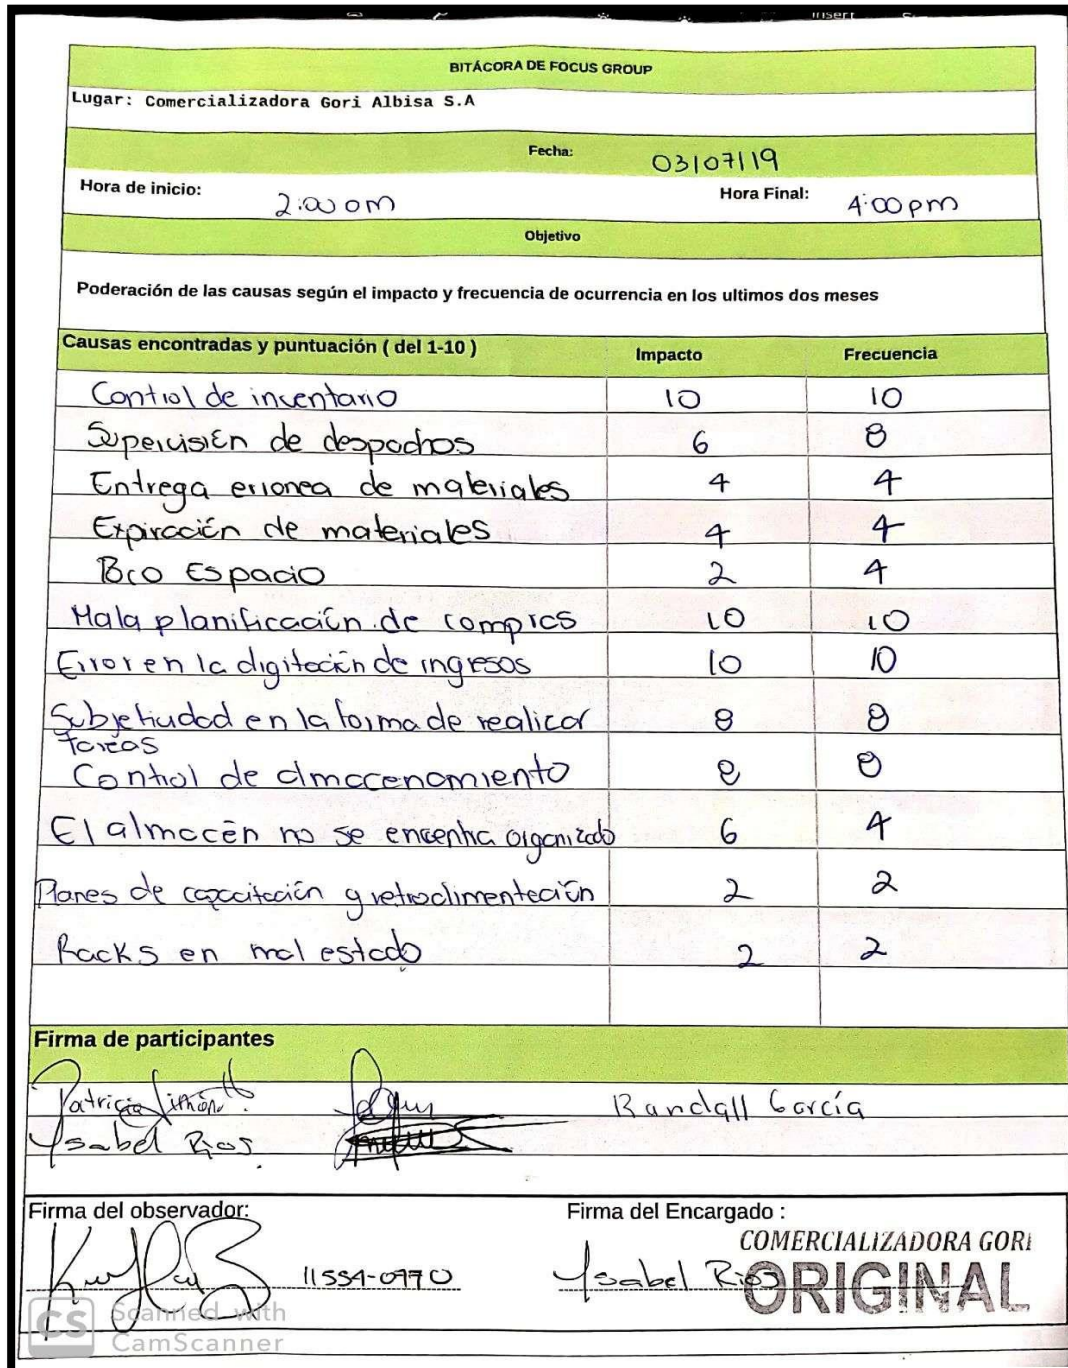 Insert
BITÁCORA DE FOCUS GROUP
Lugar: Comercializadora Gori Albisa S.A
Fecha: 03/07/19
Hora de inicio: 2:00 pm Hora Final: 4:00 pm
Objetivo
Poderación de las causas según el impacto y frecuencia de ocurrencia en los ultimos dos meses
Causas encontradas y puntuación ( del 1-10 ) Impacto Frecuencia
Control de inventario 10 10
Supervisión de despachos 6 8
Entrega erronea de materiales 4 4
Expiración de materiales 4 4
Poco Espacio 2 4
Mala planificación de compras 10 10
Error en la digitación de ingresos 10 10
Subjetividad en la forma de realizar 8 8
tareas
Control de almacenamiento 8 8
El almacén no se encuentra organizado 6 4
Planes de capacitación y retroalimentación 2 2
Racks en mal estado 2 2
Firma de participantes
Patricia Randall García
Isabel Rios.
Firma del observador: Firma del Encargado :
COMERCIALIZADORA GORI
11554-0770 Isabel Rios ORIGINAL
CS Scanned with
CamScanner